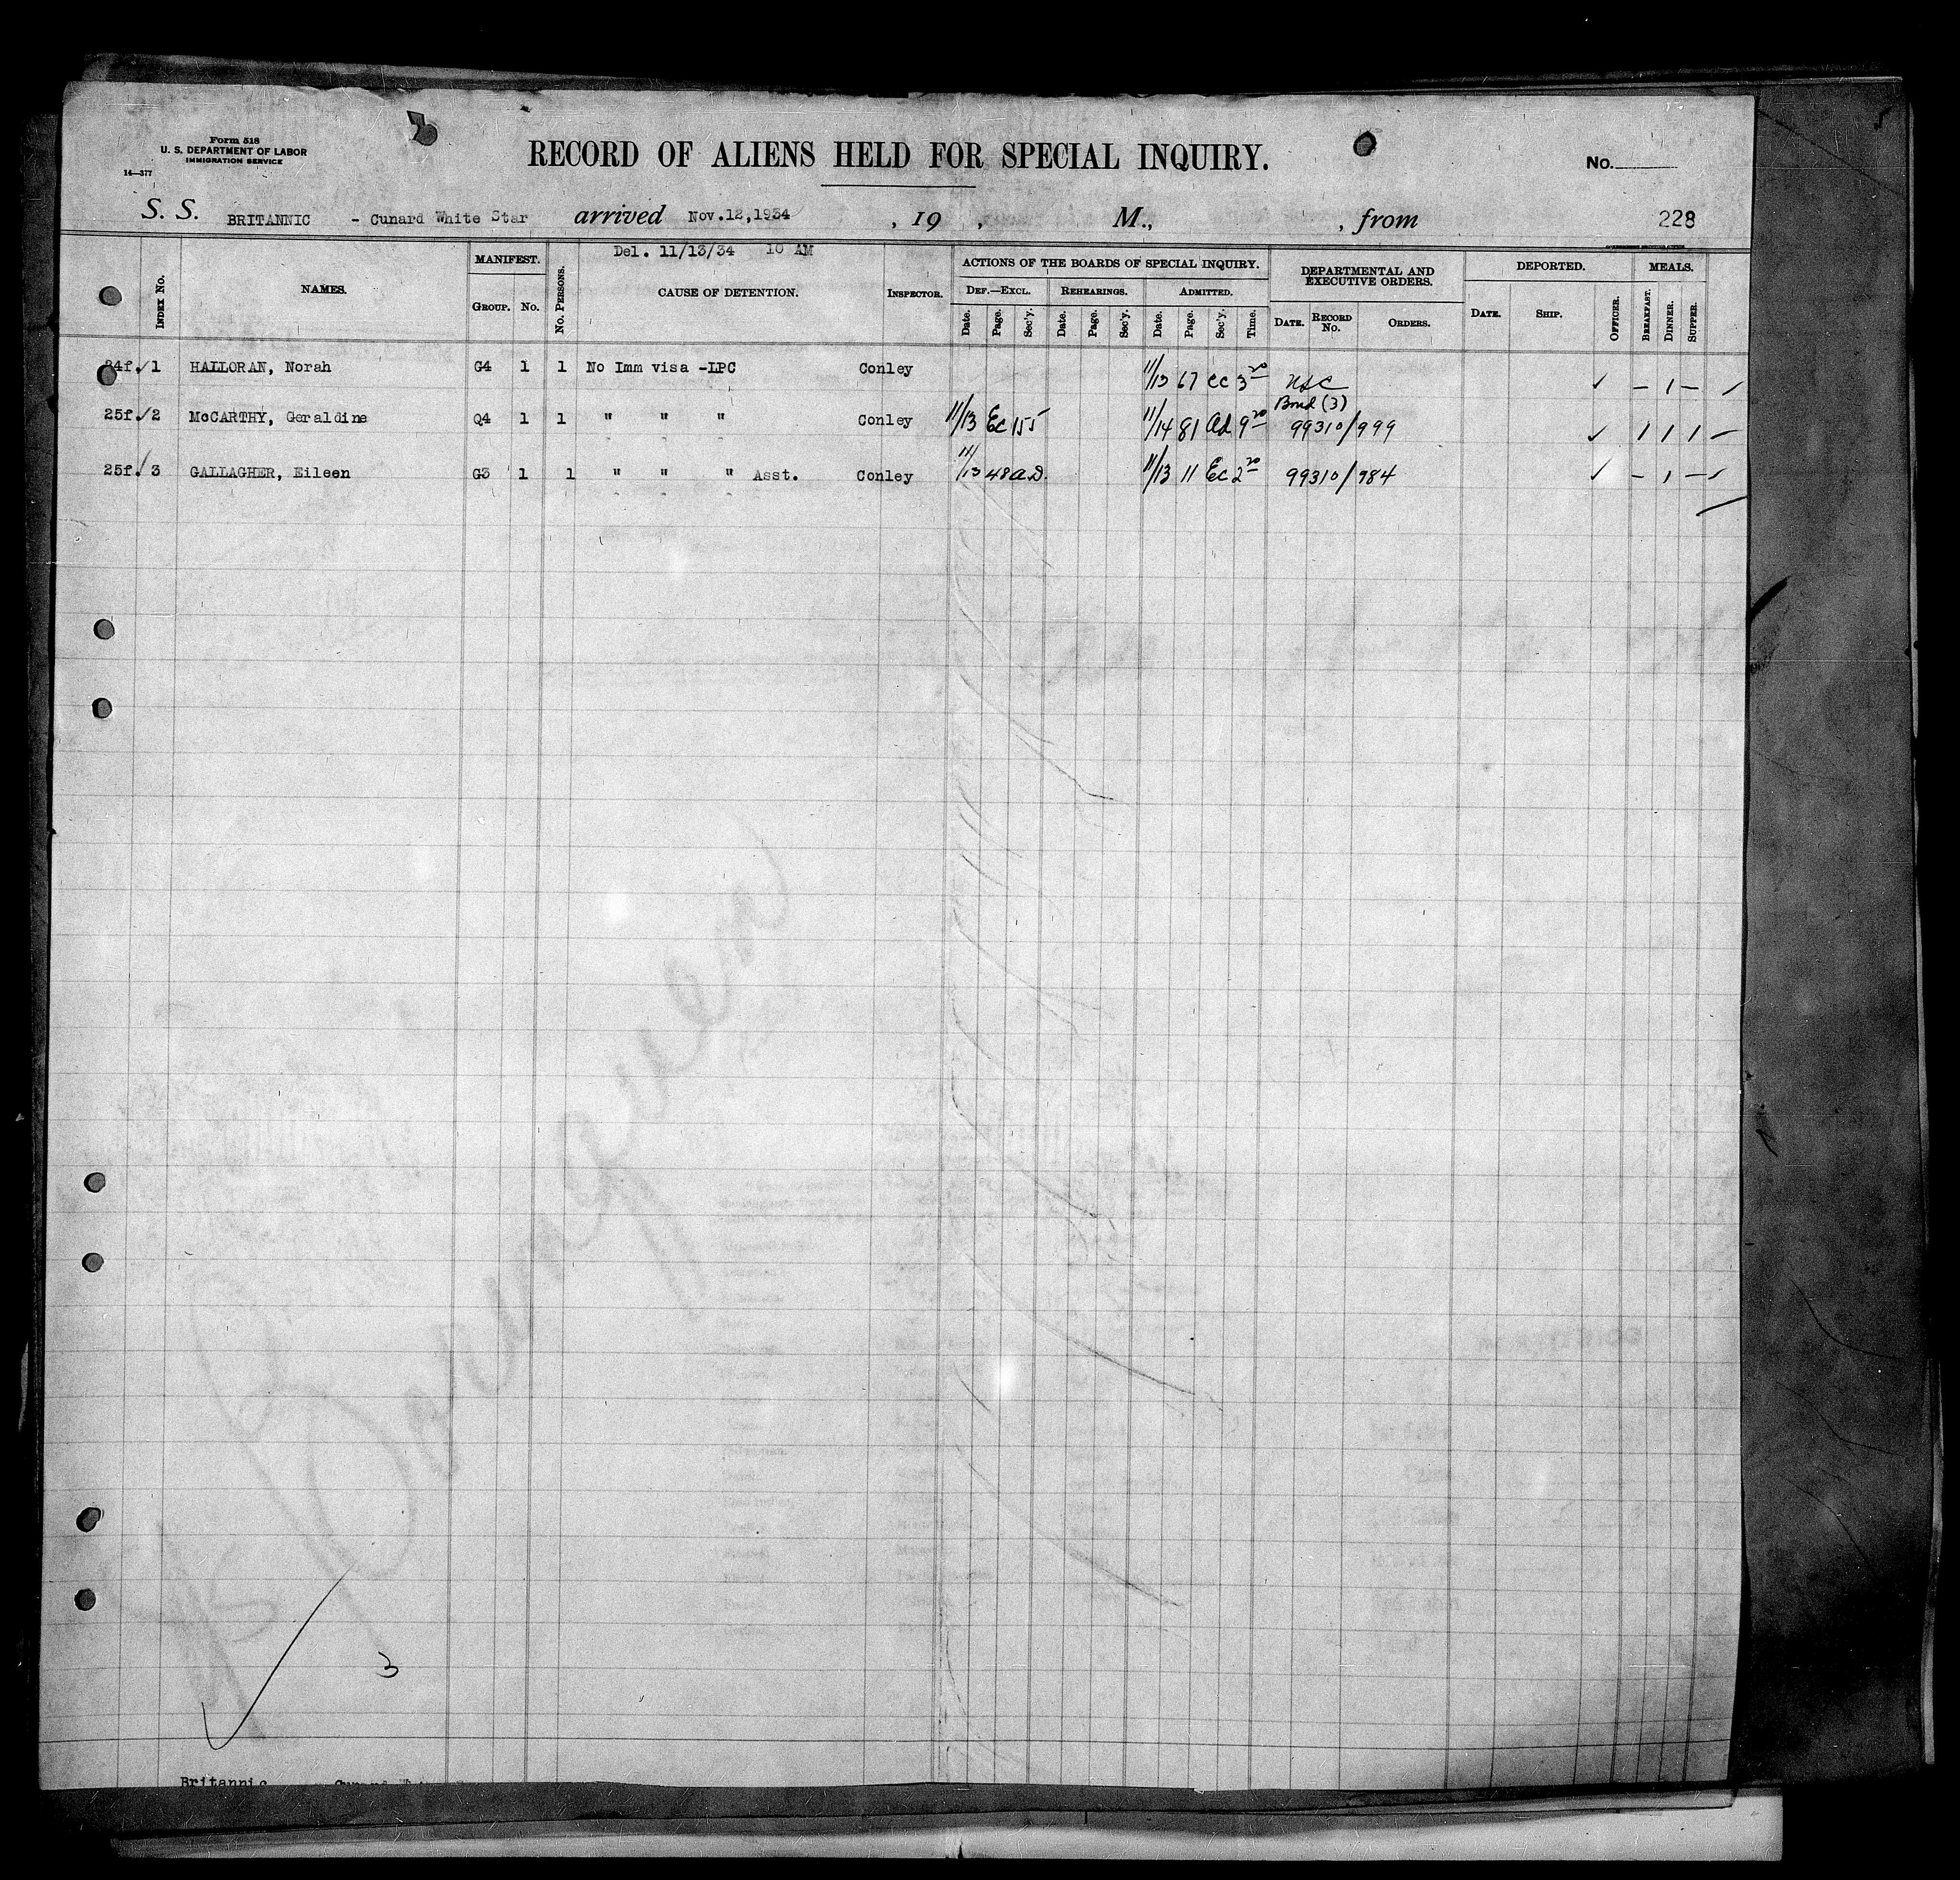 Form 518
U. S. DEPARTMENT OF LABOR
IMMIGRATION SERVICE
14—377
RECORD OF ALIENS HELD FOR SPECIAL INQUIRY.
No.
S. S. BRITANNIC - Cunard White Star arrived Nov.12,1934 , 19 , M., , from 228
Del. 11/13/34 10 AM
INDEX No. NAMES. MANIFEST. GROUP. No. No. PERSONS. CAUSE OF DETENTION. INSPECTOR. ACTIONS OF THE BOARDS OF SPECIAL INQUIRY. DEPARTMENTAL AND EXECUTIVE ORDERS. DEPORTED. MEALS.
DEF.—EXCL. REHEARINGS. ADMITTED.
Date. Page. Sec'y. Date. Page. Sec'y. Date. Page. Sec'y. Time. DATE. RECORD No. ORDERS. DATE. SHIP. OFFICER. BREAKFAST. DINNER. SUPPER.
24f. ✓ 1 HALLORAN, Norah G4 1 1 No Imm visa -LPC Conley 11/13 67 EC 3 20 ✓ — 1 —
Bond (3)
25f. ✓ 2 McCARTHY, Geraldine Q4 1 1 " " " Conley 11/13 Ec 155 11/14 81 Ad 9 20 99310/999 ✓ 1 1 1
25f. ✓ 3 GALLAGHER, Eileen G3 1 1 " " " Asst. Conley 11/13 48 A.D. 11/13 11 Ec 2 20 99310/984 ✓ — 1 —
3
Britannic